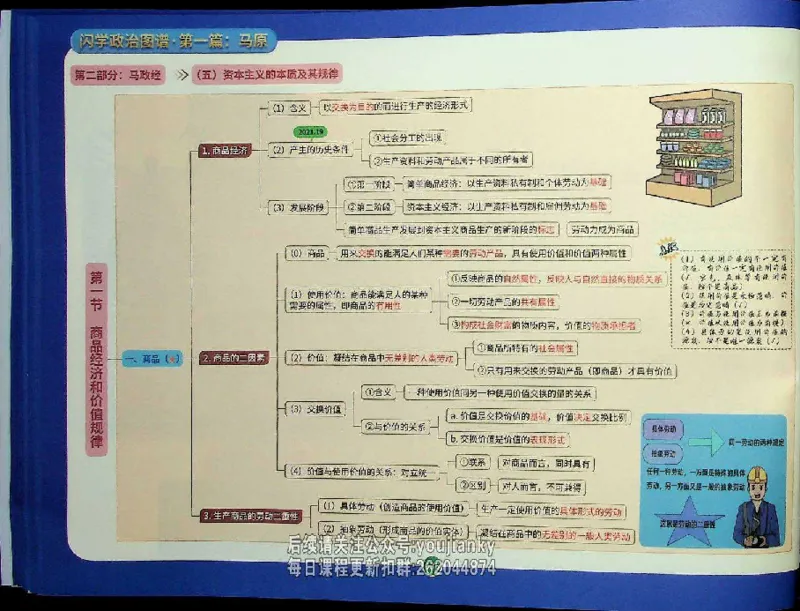 闪学政治图谱·第一篇：马原
第二部分：马政经
（五）资本主义的本质及其规律
第一节 商品经济和价值规律
一、商品（★）
1. 商品经济
（1）含义
以交换为目的的而进行生产的经济形式
2021.19
（2）产生的历史条件
①社会分工的出现
②生产资料和劳动产品属于不同的所有者
（3）发展阶段
①第一阶段
简单商品经济：以生产资料私有制和个体劳动为基础
②第二阶段
资本主义经济：以生产资料私有制和雇佣劳动为基础
简单商品生产发展到资本主义商品生产的新阶段的标志
劳动力成为商品
2. 商品的二因素
（0）商品
用来交换的能满足人们某种需要的劳动产品，具有使用价值和价值两种属性
（1）使用价值：商品能满足人的某种
需要的属性，即商品的有用性
①反映商品的自然属性，反映人与自然直接的物质关系
②一切劳动产品的共有属性
③构成社会财富的物质内容，价值的物质承担者
（2）价值：凝结在商品中无差别的人类劳动
①商品所特有的社会属性
②只有用来交换的劳动产品（即商品）才具有价值
（3）交换价值
①含义
一种使用价值同另一种使用价值交换的量的关系
②与价值的关系
a. 价值是交换价值的基础，价值决定交换比例
b. 交换价值是价值的表现形式
（4）价值与使用价值的关系：对立统一
①联系
对商品而言，同时具有
②区别
对人而言，不可兼得
3. 生产商品的劳动二重性
（1）具体劳动（创造商品的使用价值）
生产一定使用价值的具体形式的劳动
（2）抽象劳动（形成商品的价值实体）
凝结在商品中的无差别的一般人类劳动
具体劳动
抽象劳动
同一劳动的两种规定
任何一种劳动，一方面是特殊的具体
劳动，另一方面又是一般的抽象劳动
这就是劳动的二重性
后续请关注公众号:youjianky
每日课程更新扣群:262044874